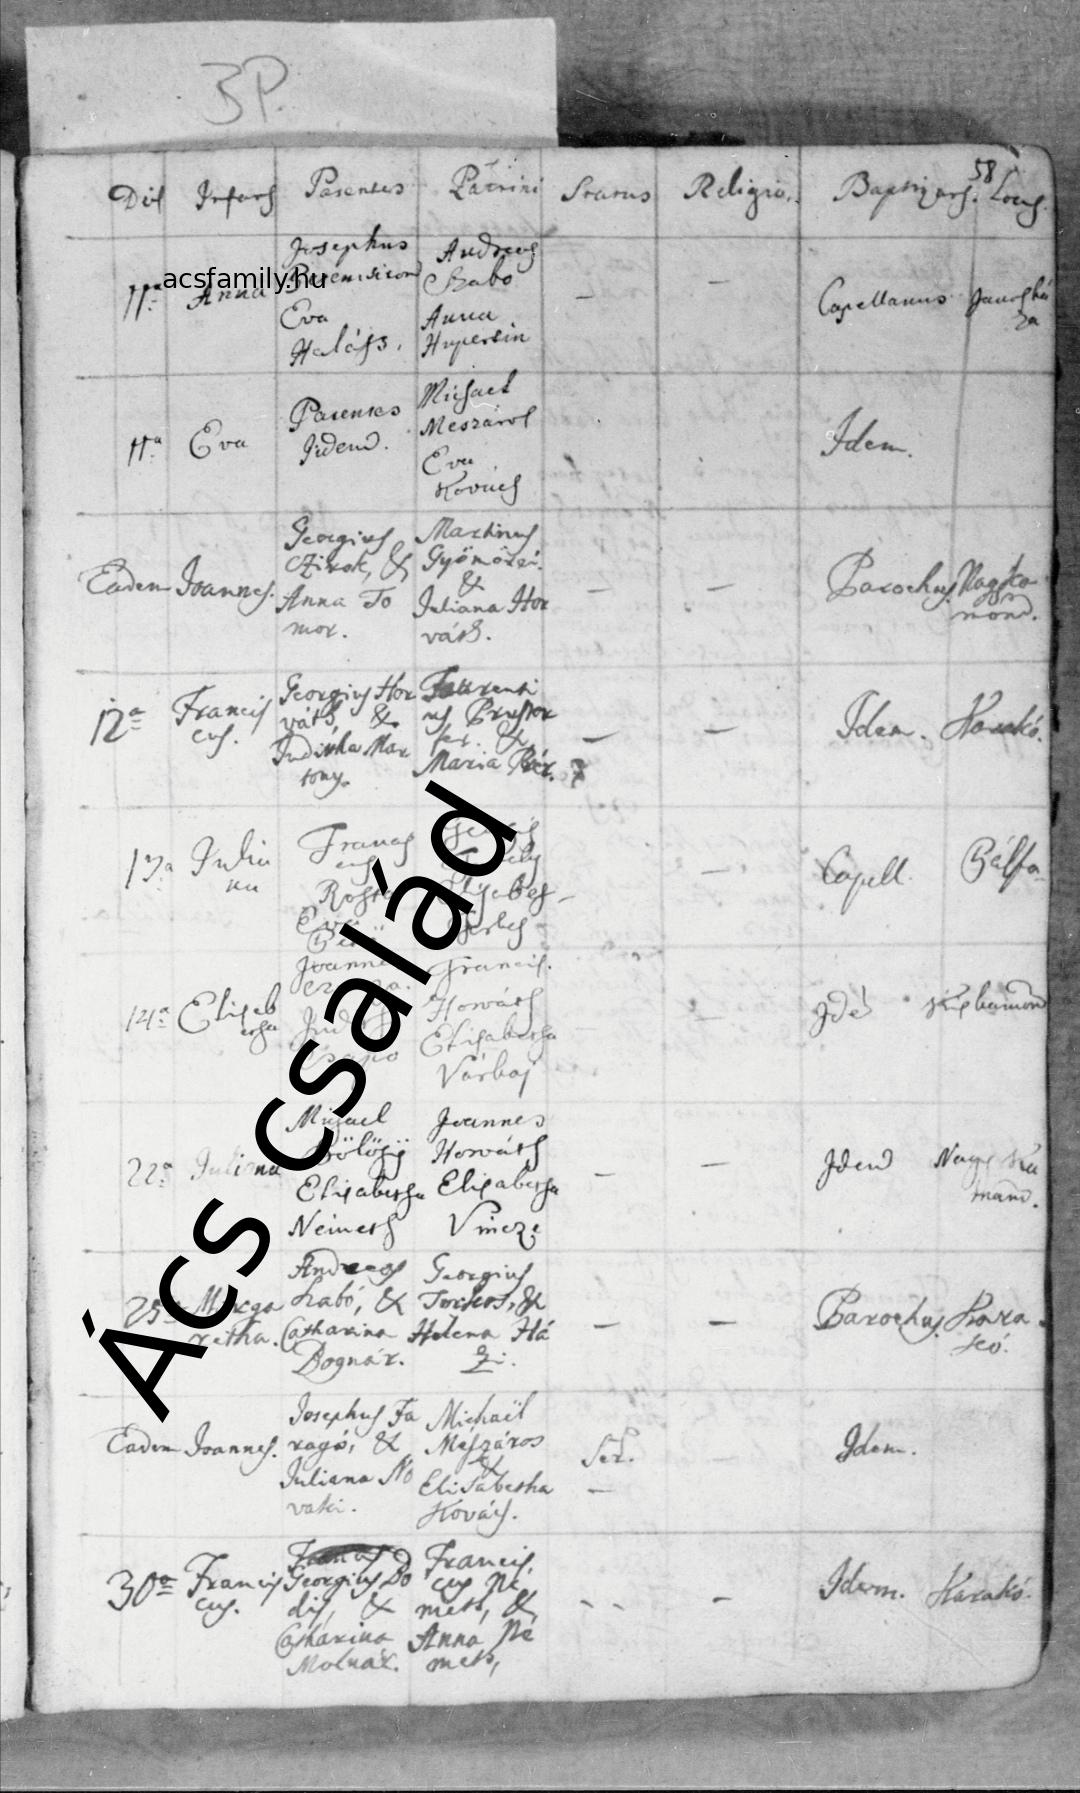 3P.
58
Dies Infans Parentes Patrini Status Religio. Baptizans. Locus.
acsfamily.hu
11a Anna
Josephus
Eva
Halász.
Andreas
Szabo
Anna
Hupersin
Capellanus
11a Eva
Parentes
Iidem.
Michael
Meszáros
Eva
Kovács
Idem.
Eadem Ioannes.
Georgius
Czirok, &
Anna To
mor.
Martinus
Gyömörei.
&
Juliana Hor
váth.
Parochus. Nagy Ka
mond.
12a Francis
cus.
Georgius Hor
váth, &
Juditha Mar
tony.
Laurenti
us
&
Maria
Idem. Karakó.
13a Julia
na
Francis
cus
Eva
Capell. Bélfa
14a Elisab
etha
Francis.
Horváth
Elisabetha
Várbaj
Idem Kis Kamond
22a Juliana
Michael
Elisabetha
Nemeth
Joannes
Horváth
Elisabetha
Vincze
Idem Nagy Ka
mand.
25a Marga
retha.
Andreas
Szabó, &
Catharina
Bognár.
Georgius
&
Helena Há
zi.
Parochus. Kara
kó.
Eadem Ioannes.
Josephus Fa
ragó, &
Juliana No
vaki.
Michaël
Mészáros
&
Elisabetha
Kovács.
Idem.
30a Francis
cus.
Georgius Bo
dis, &
Catharina
Molnár.
Francis
cus Né
meth, &
Anna Né
meth,
Idem. Karakó.
Ács család